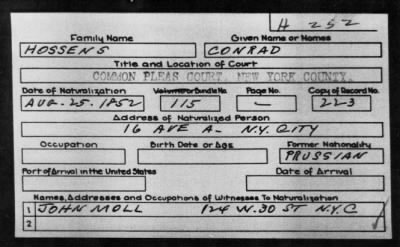 H 252
Family Name Given Name or Names
HOSSENS CONRAD
Title and Location of Court
COMMON PLEAS COURT, NEW YORK COUNTY.
Date of Naturalization Volume or Bundle No. Page No. Copy of Record No.
AUG. 25. 1852 115 — 223
Address of Naturalized Person
16 AVE A- N.Y. CITY
Occupation Birth Date or Age Former Nationality
PRUSSIAN
Port of Arrival in the United States Date of Arrival
Names, Addresses and Occupations of Witnesses To Naturalization
1 JOHN MOLL 124 W. 30 ST N.Y.C
2